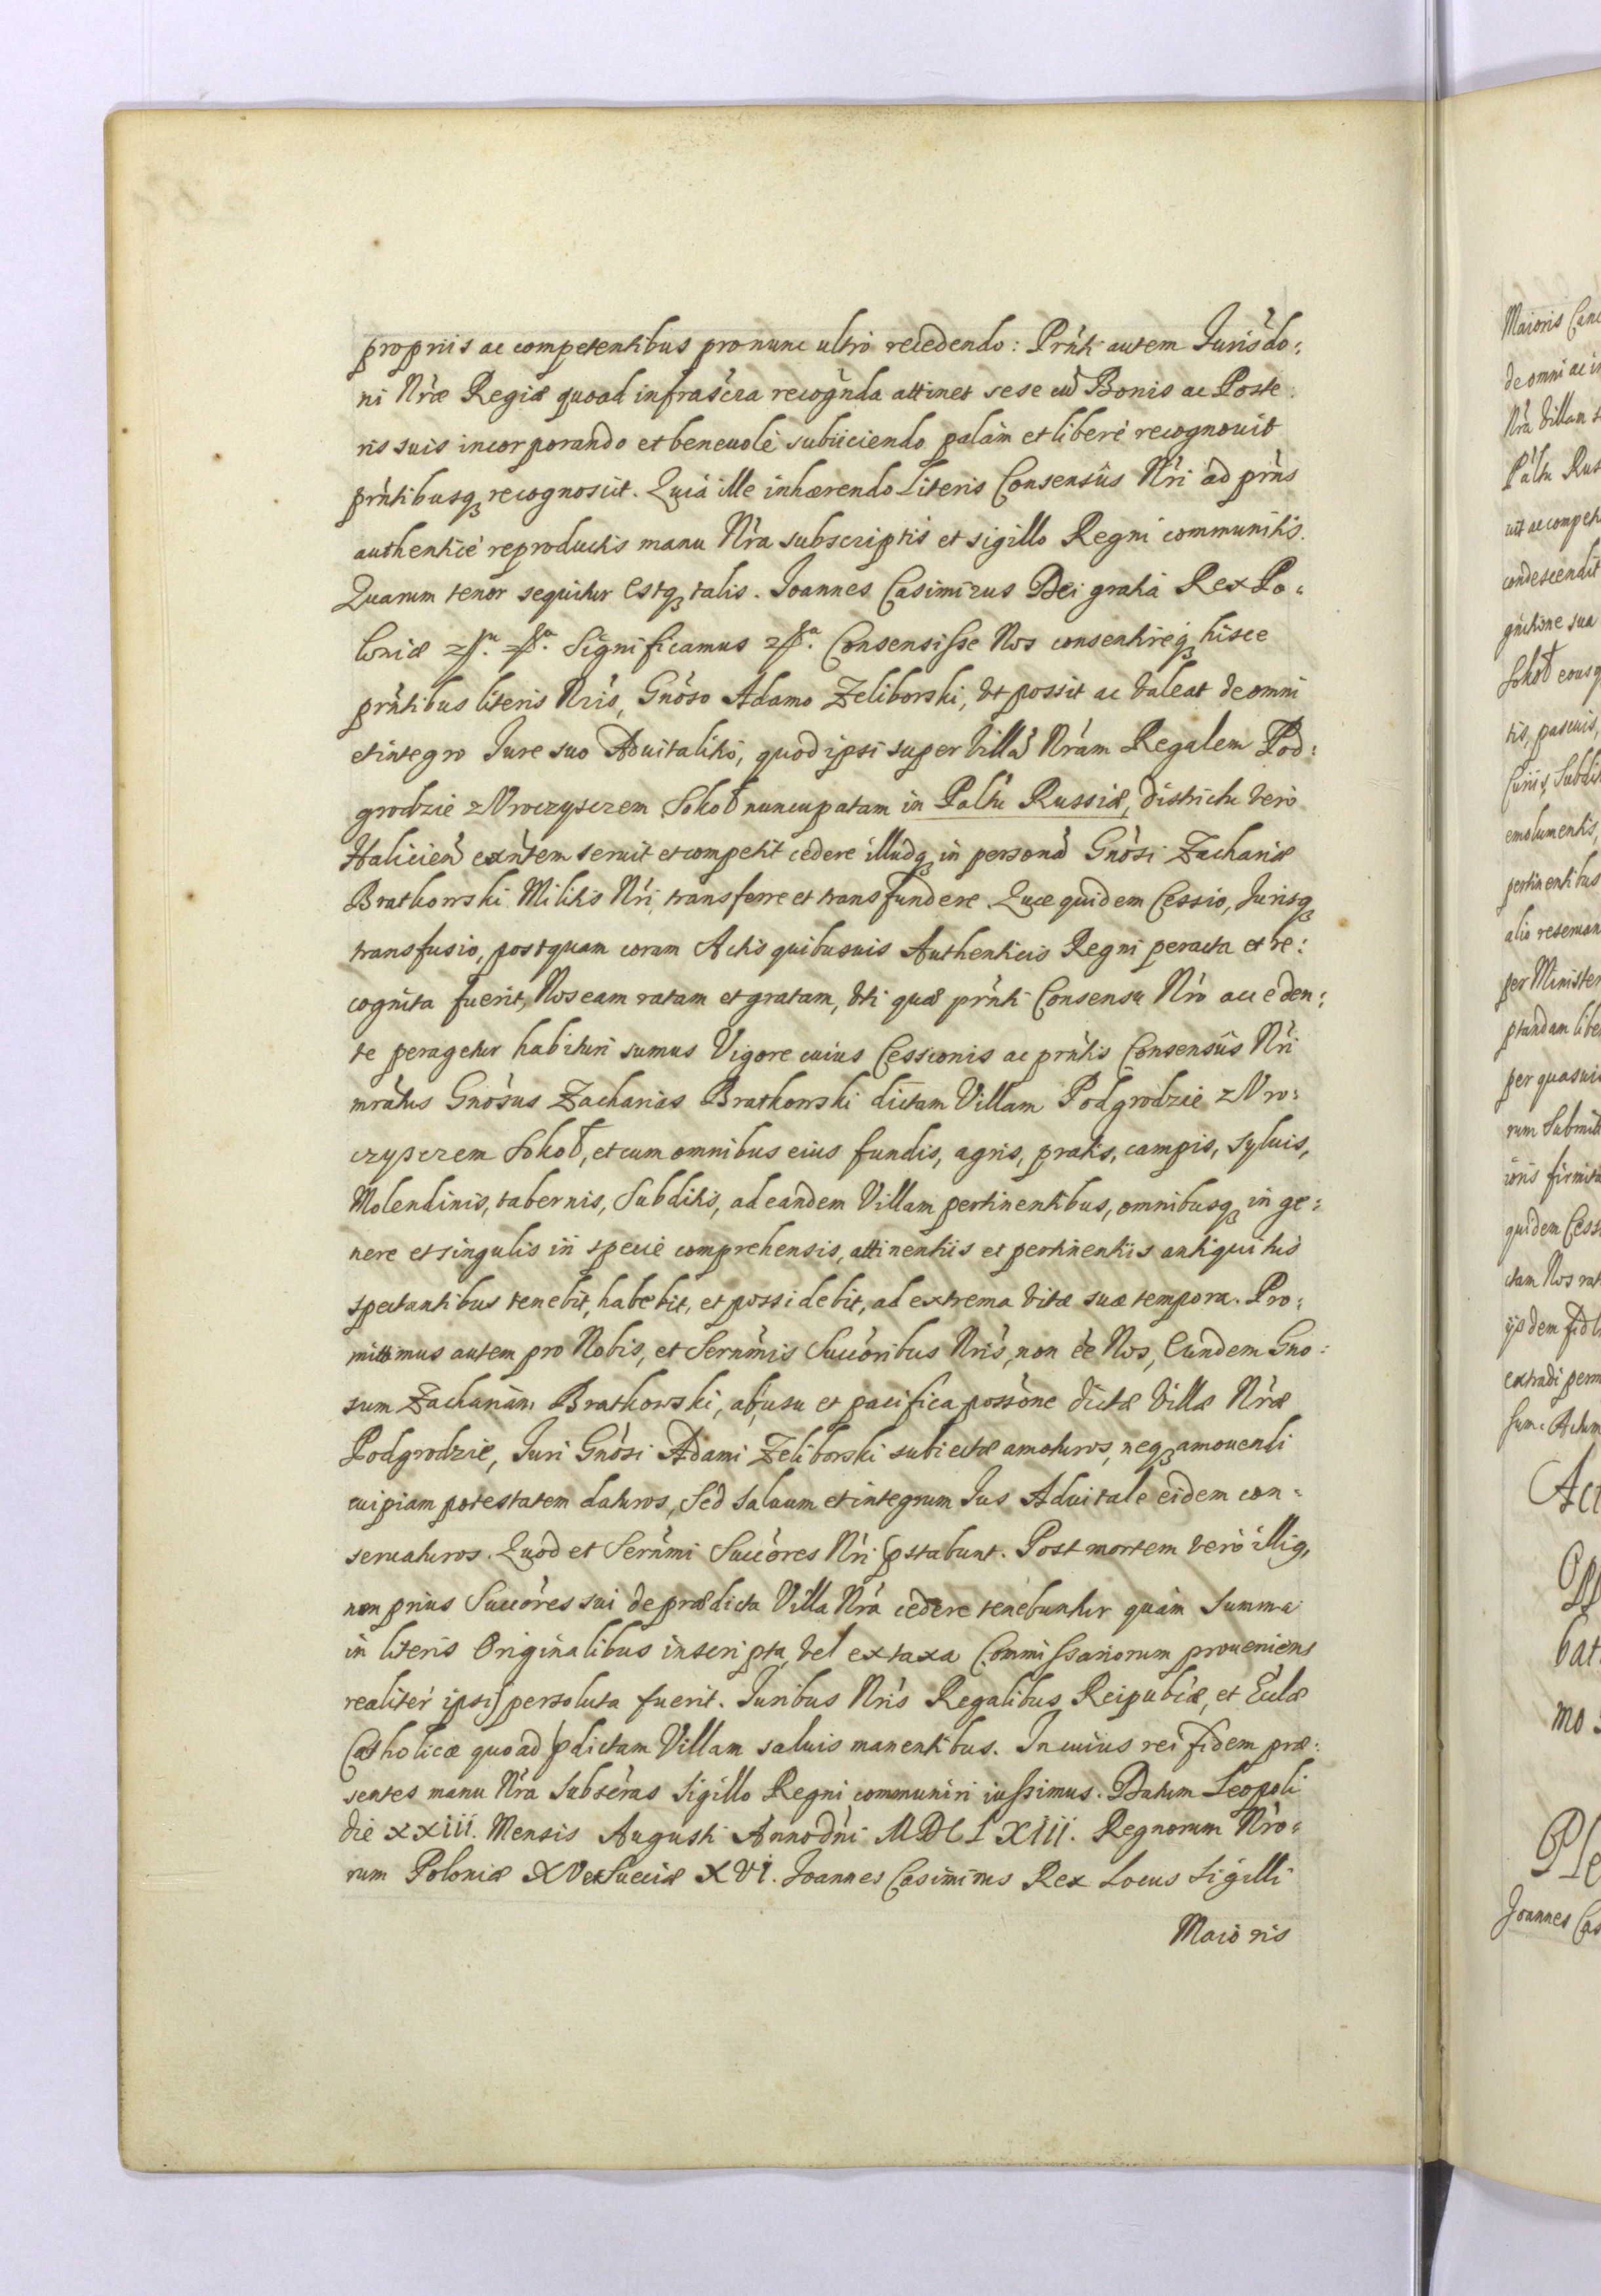 propriis ac competentibus pro nunc ultrò recedendo: Prńti autem Jurisdo:
ni Nŕæ Regiæ quoad infrasc̀ra recogñda attinet sese cū Bonis ac Poste:
ris suis incorporando et beneuolè subiiciendo palàm et liberè recognouit
prńtibusq recognoscit. Quià ille inhærendo Literis Consensûs Nŕi ad prńs
authenticè reproductis manu Nŕa subscriptis et sigillo Regni communitis.
Quarum tenor sequitur estq talis. Joannes Casimirus Dei gratiâ Rex Po:
loniæ Significamus Consensisse Nos consentireq hisce
prńtibus literis Nŕis, Gnòso Adamo Zeliborski, vt possit ac valeat de omni
et integro Jure suo Aduitalitio, quod ipsi super Villā Nŕam Regalem Pod:
grodzie z Vroczyszczem Sokoł nuncupatam in Paltu Russiæ, districtu verò
Halicień exńtem seruit et competit cedere illudq in personā Gnòsi Zachariæ
Bratkowski Militis Nŕi, transferre et transfundere. Quæ quidem Cessio, Jurisq
transfusio, postquam coram Actis quibusuis Authenticis Regni peracta et re:
cognita fuerit, Nos eam ratam et gratam, vti quæ prńti Consensu Nŕo acceden:
te peragetur habituri sumus Vigore cuius Cessionis ac prńtis Consensûs Nŕi
mŕatus Gnòsus Zacharias Bratkowski dictam Villam Podgrodzie z Vro:
czyszczem Sokoł, et cum omnibus eius fundis, agris, pratis, campis, syluis,
Molendinis, tabernis, Subditis, ad eandem Villam pertinentibus, omnibusq in ge:
nere et singulis in specie comprehensis, attinentiis et pertinentiis antiquitùs
spectantibus tenebit, habebit, et possidebit, ad extrema vitæ suæ tempora. Pro:
mittimus autem pro Nobis, et Serńmis Succòribus Nŕis, non èe Nos, Eundem Gno:
sum Zachariam Bratkowski, ab usu et pacifica possòne dictæ Villæ Nŕæ
Podgrodzie, Juri Gnòsi Adami Zeliborski subiectæ amoturos, neq amouendi
cuipiam potestatem daturos, Sed saluum et integrum Jus Aduitale eidem con:
seruaturos. Quod et Serńmi Succòres Nŕi pstabunt. Post mortem verò illiq,
non prius Succòres sui de prædicta Villa Nŕa cedere tenebuntur quàm Summa
in literis Originalibus inscripta, vel ex taxa Commissariorum proueniens
realitèr ipsis persoluta fuerit. Juribus Nŕis Regalibus, Reipublæ, et Ecclæ
Catholicæ quoad pdictam Villam saluis manentibus. In cuius rei fidem præ:
sentes manu Nŕa Subscras Sigillo Regni communiri iussimus. Datum Leopoli
die XXIII. Mensis Augusti Anno Dńi MDCLXIII. Regnorum Nŕo:
rum Poloniæ XV et Sueciæ XVI. Joannes Casimirus Rex Locus Sigilli
Maioris